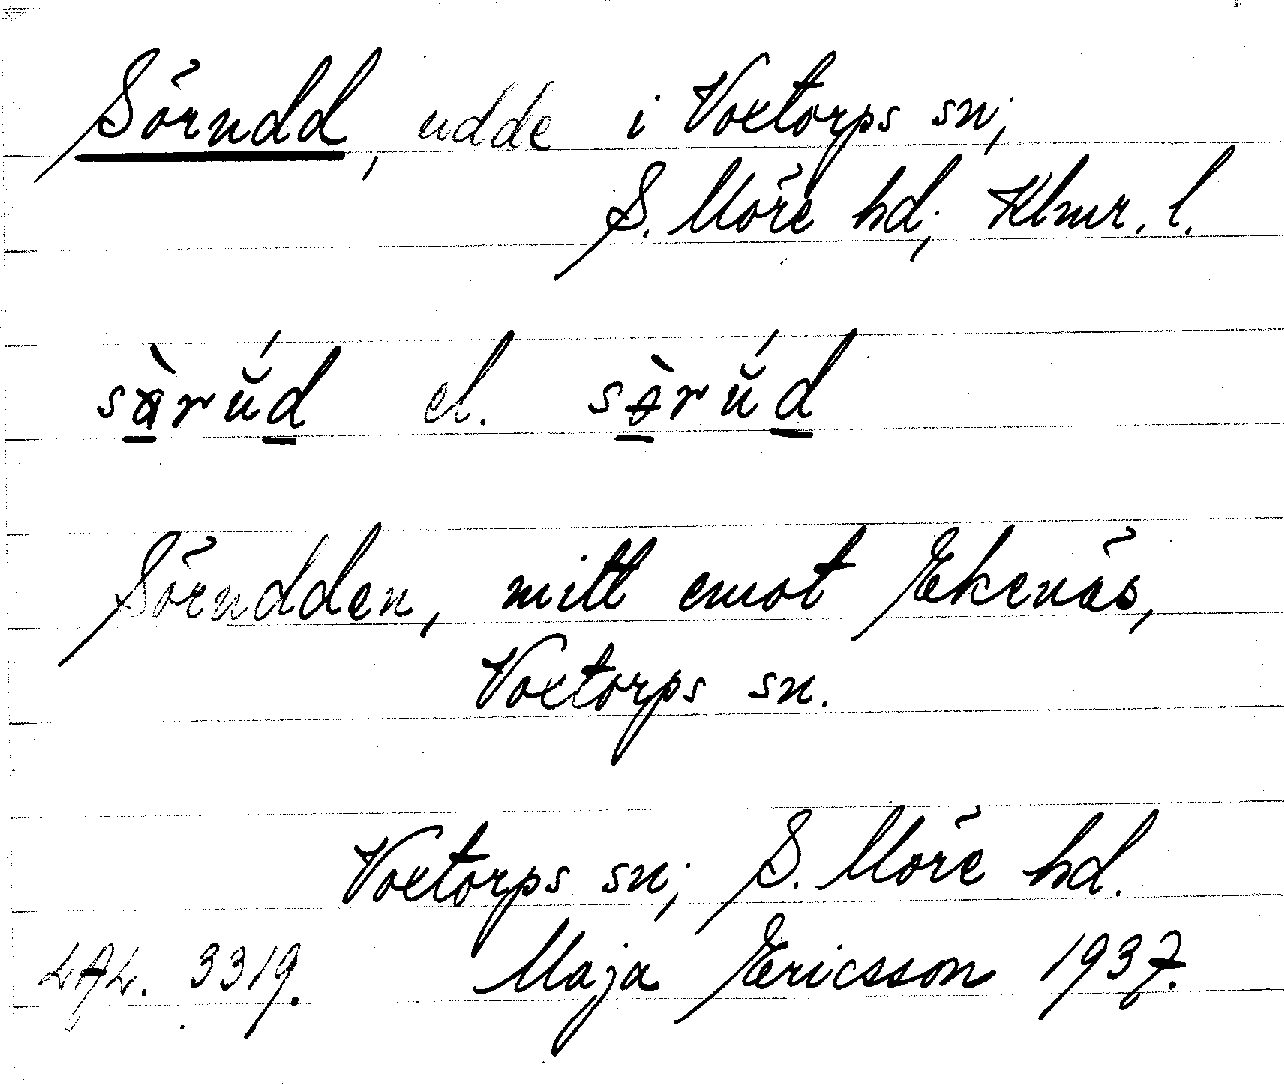 Sörudd, udde i Voxtorps sn;
S. Möre hd; Klmr. l.
el.
Sörudden, mitt emot Ekenäs,
Voxtorps sn.
Voxtorps sn; S. Möre hd.
LAL. 3319. Maja Ericsson 1937.